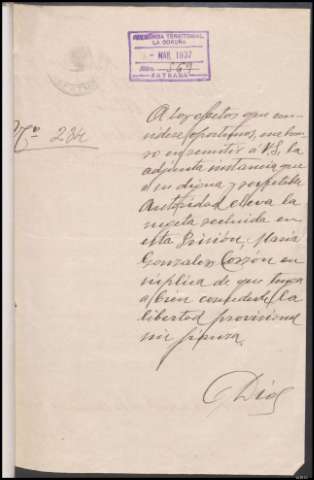 AUDIENCIA TERRITORIAL
LA CORUÑA
MAR 1937
Núm. 369
ENTRADA
Nº 234
A los efectos que con-
sidere oportunos, me hon-
ro en remitir á V.S. la
adjunta instancia que
a su digna y respetable
Autoridad eleva la
sujeta recluida en
esta Prisión, María
Gonzalez Corzón en
suplica de que tenga
a bien concederle la
libertad provisional
sin fianza.
G Dios